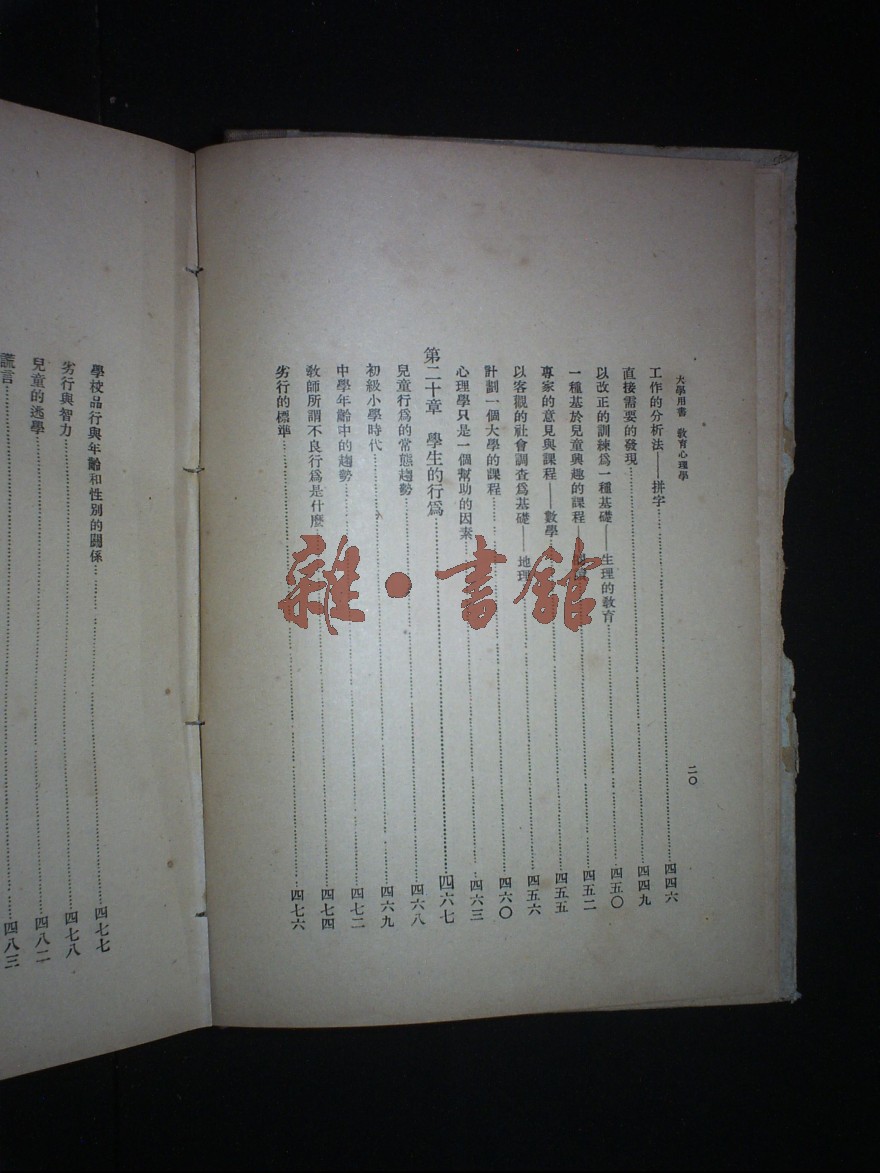 大學用書 教育心理學
二〇
工作的分析法——拼字……四四六
直接需要的發現……四四九
以改正的訓練爲一種基礎——生理的教育……四五〇
一種基於兒童興趣的課程……四五二
專家的意見與課程——數學……四五五
以客觀的社會調查爲基礎——地理……四五六
計劃一個大學的課程……四六〇
心理學只是一個幫助的因素……四六三
第二十章 學生的行爲……四六七
兒童行爲的常態趨勢……四六八
初級小學時代……四六九
中學年齡中的趨勢……四七二
教師所謂不良行爲是什麼……四七四
劣行的標準……四七六
學校品行與年齡和性別的關係……四七七
劣行與智力……四七八
兒童的逃學……四八二
謊言……四八三
雜·書館